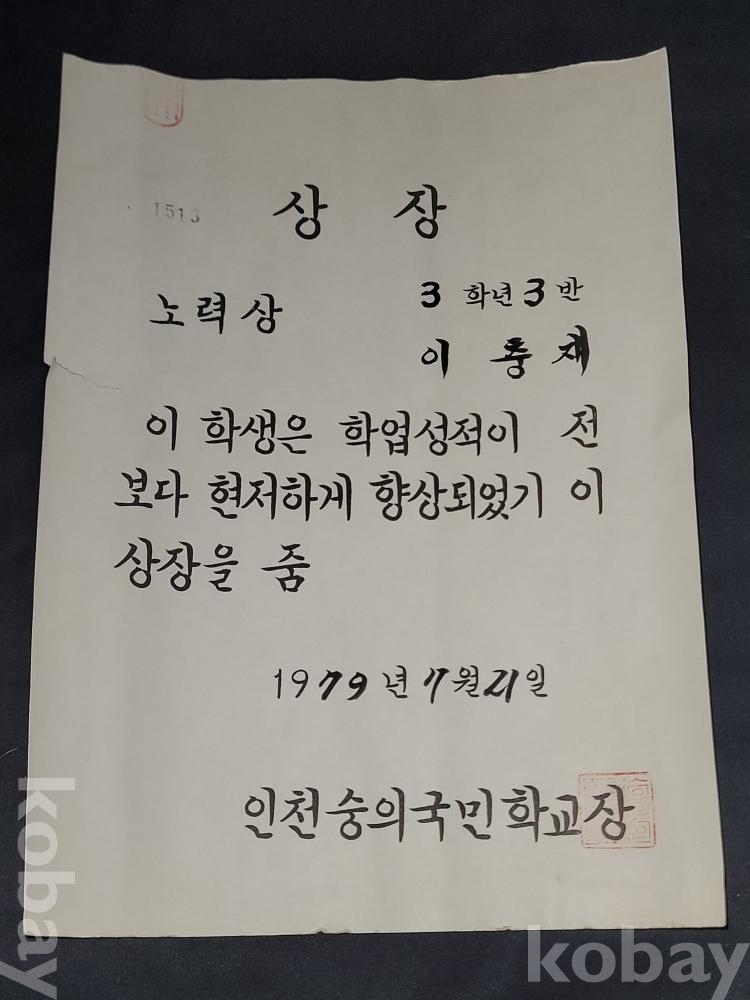 상 장
노력상
3 학년 3 반
이
이 학생은 학업성적이 전
보다 현저하게 향상되었기 이
상장을 줌
1979년 7월 21일
인천숭의국민학교장
kobay
kobay